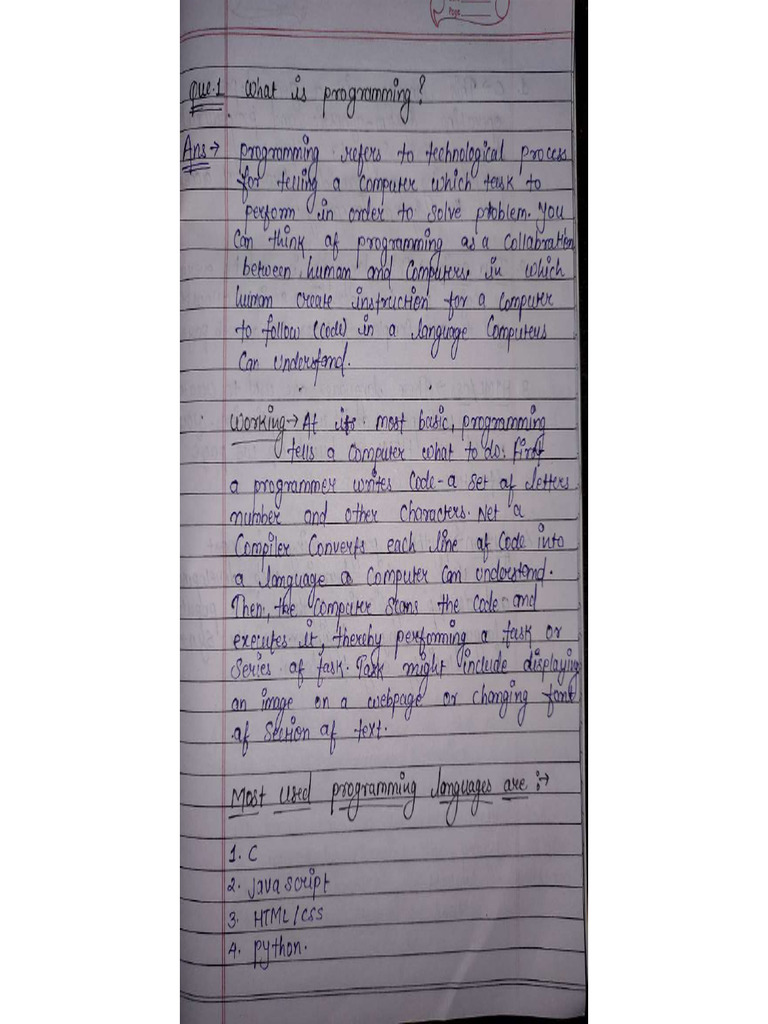 Page
Que.1 What is programming?
Ans → programming refers to technological process
for telling a computer which task to
perform in order to solve problem. You
Can think of programming as a collabration
between human and Computers, in which
human create instruction for a computer
to follow (Code) in a language Computers
Can understand.
Working → At its most basic, programming
tells a Computer what to do. first
a programmer writes Code - a set of letters
number and other Characters. Net a
Compiler Converts each line of Code into
a language a Computer Can understand.
Then, the Computer scans the code and
executes it, thereby performing a task or
Series of task. Task might include displaying
an image on a webpage or changing font
of Section of text.
Most used programming languages are :→
1. C
2. Javascript
3. HTML/CSS
4. python.